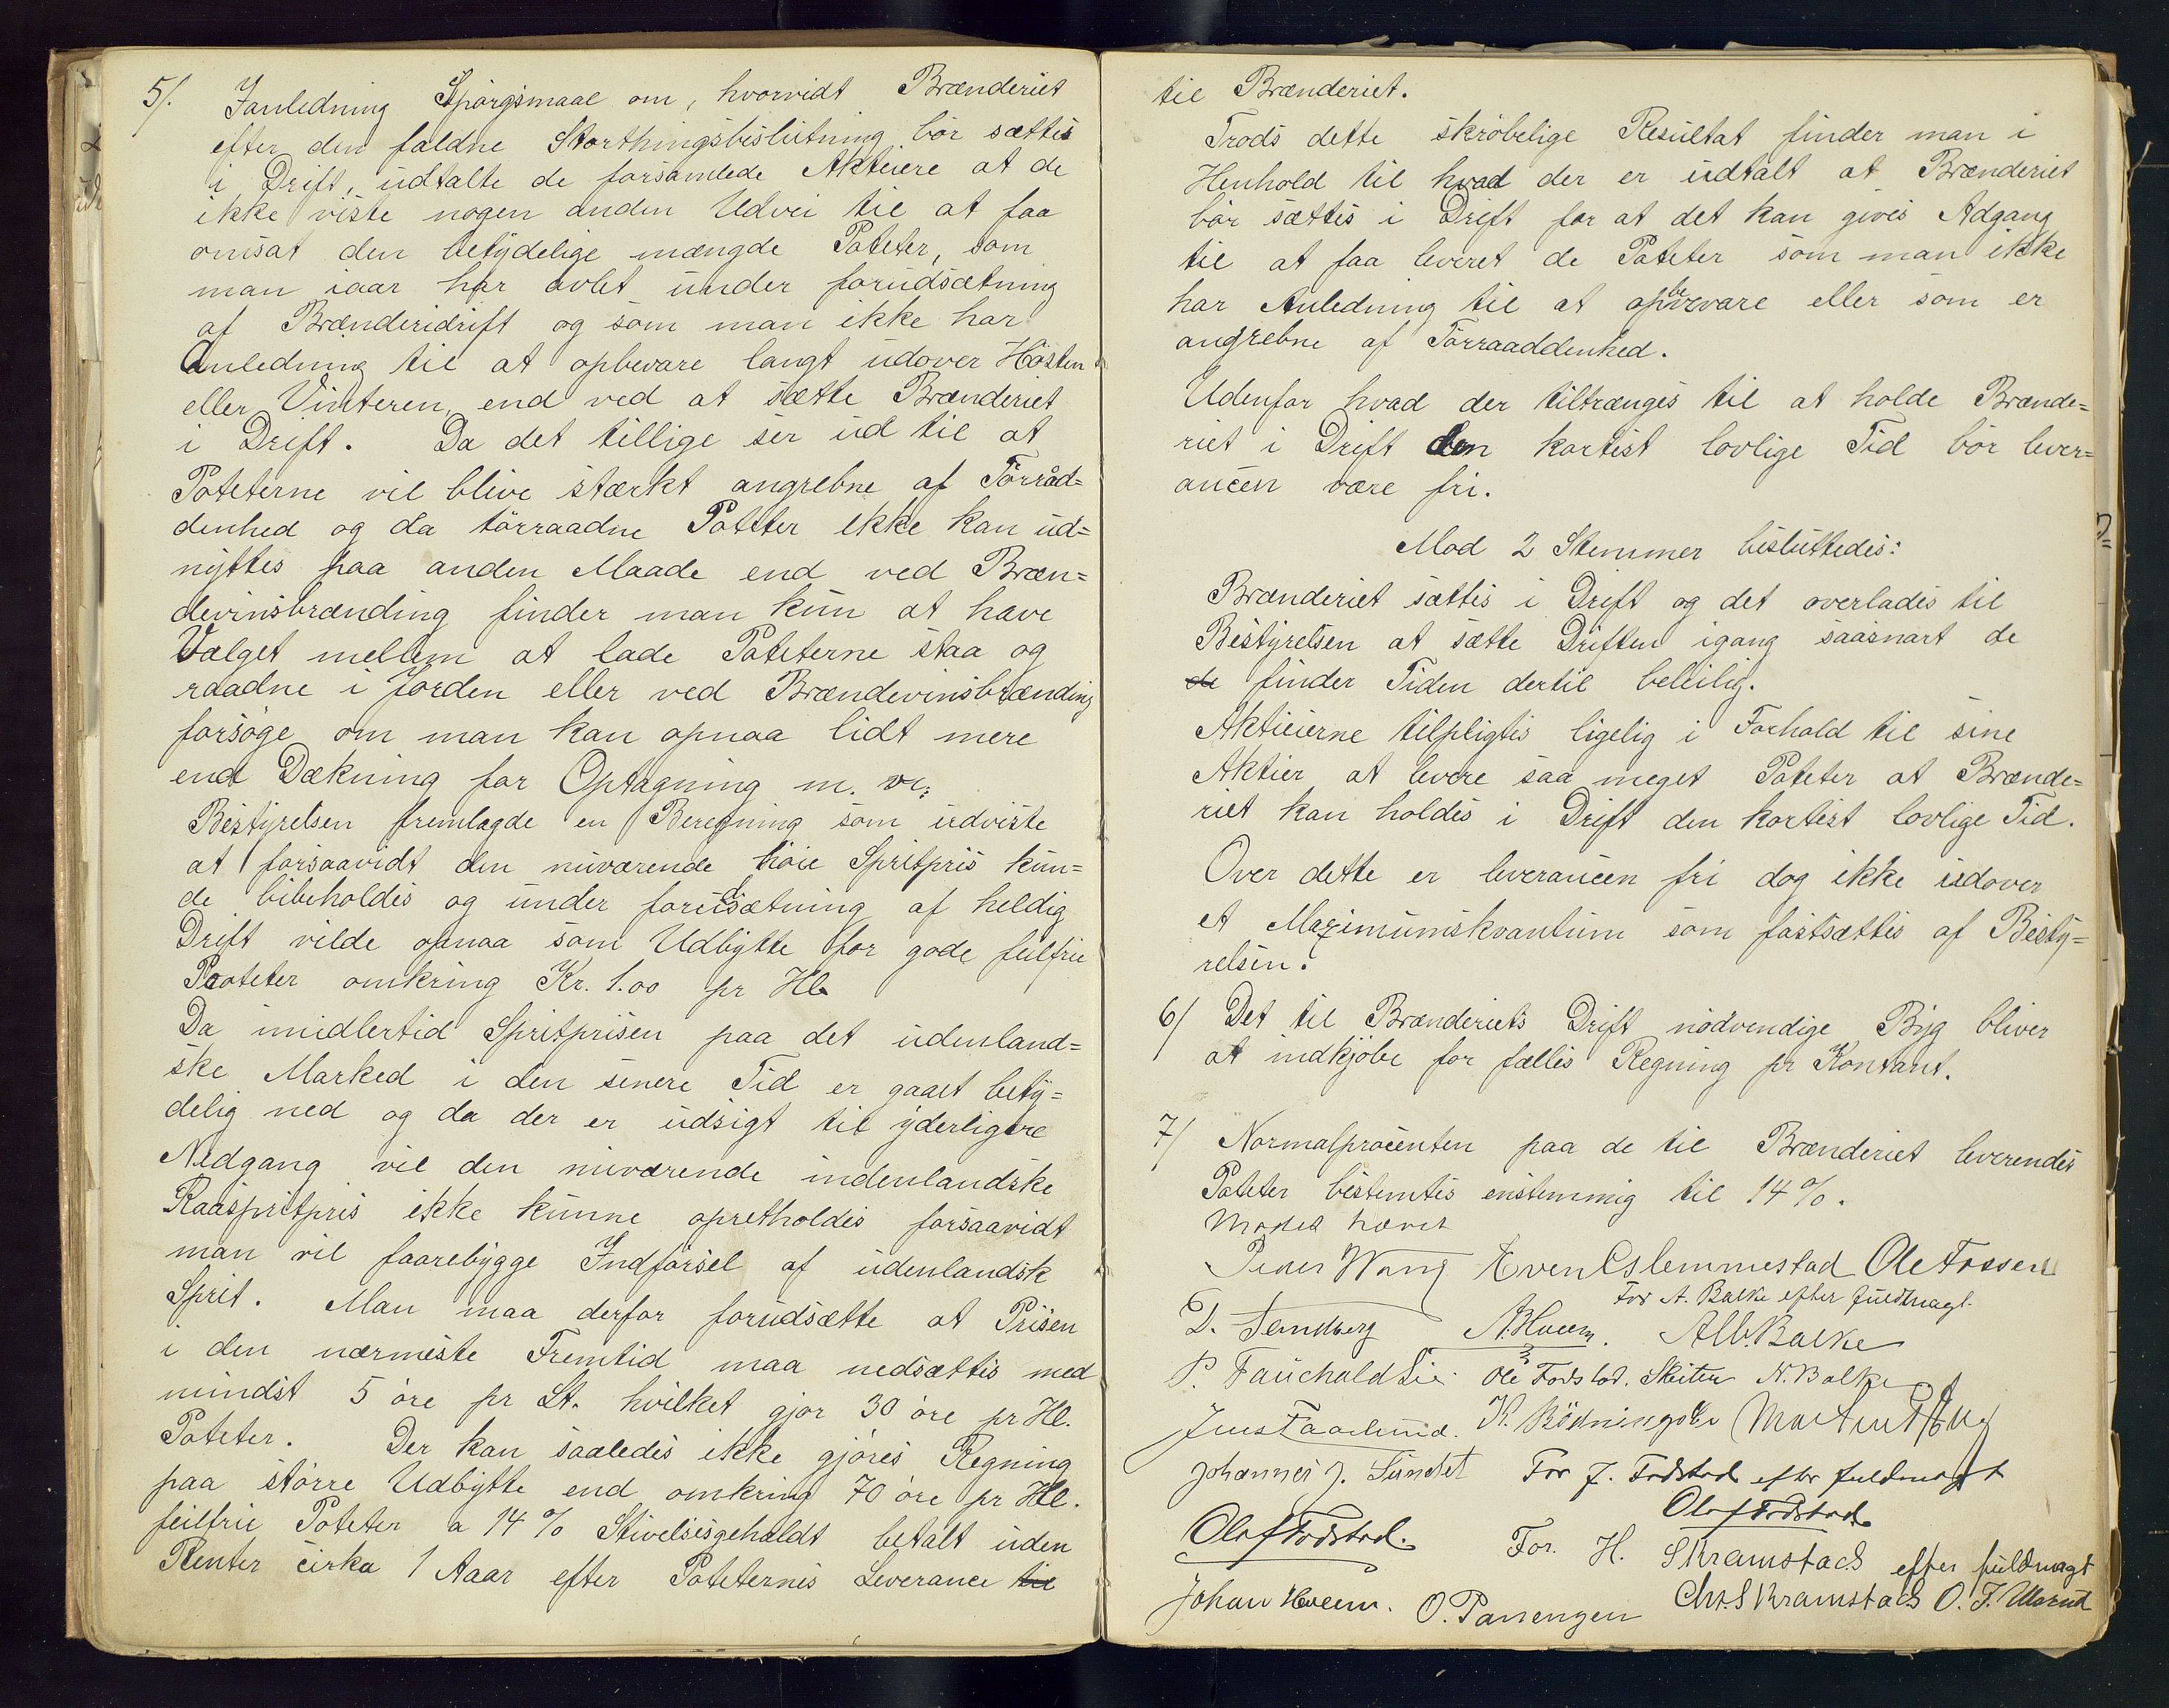 5/. Ianledning Spörgsmaal om, hvorvidt Brænderiet
efter den faldne Storthingsbeslutning bör sættes
i Drift, udtalte de forsamlede Aktieiere at de
ikke viste nogen anden Udvei til at faa
omsat den betydelige mængde Poteter, som
man iaar har avlet under forudsætning
af Brænderidrift og som man ikke har
Anledning til at opbevare langt udover Hösten
eller Vinteren, end ved at sætte Brænderiet
i Drift. Da det tillige ser ud til at
Poteterne vil blive stærkt angrebne af Törråd=
denhed og da törraadne Poteter ikke kan ud=
nyttes paa anden Maade end ved Bræn=
devinsbrænding finder man kun at have
Valget mellem at lade Poteterne staa og
raadne i Jorden eller ved Brændevinsbrænding
forsöge om man kan opnaa lidt mere
end Dækning for Optagning m. v.
Bestyrelsen fremlagde en Beregning som udviste
at forsaavidt den nuværende höie Spritpris kun=
de bibeholdes og under forudsætning af heldig
Drift vilde opnaa som Udbytte for gode feilfrie
Poteter omkring Kr. 1.00 pr Hl.
Da imidlertid Spritprisen paa det udenland=
ske Marked i den senere Tid er gaaet bety=
delig ned og da der er udsigt til yderligere
Nedgang vil den nuværende indenlandske
Raaspritpris ikke kunne opretholdes forsaavidt
man vil faarebygge Indförsel af udenlandsk
Sprit. Man maa derfor forudsætte at Prisen
i den nærmeste Fremtid maa nedsættes med
mindst 5 öre pr Lt. hvilket gjør 30 öre pr Hl.
Poteter. Der kan saaledes ikke gjöres Regning
paa större Udbytte end omkring 70 öre pr Hl.
feilfrie Poteter a 14 % Stivelsesgehaldt betalt uden
Renter cirka 1 Aaar efter Poteternes Leverance til
til Brænderiet.
Trods dette skröbelige Resultat finder man i
Henhold til hvad der er udtalt at Brænderiet
bör sættes i Drift for at det kan gives Adgang
til at faa leveret de Poteter som man ikke
har Anledning til at opbevare eller som er
angrebne af Törraaddenhed.
Udenfor hvad der tiltrænges til at holde Brænde=
riet i Drift den kortest lovlige Tid bör lever=
ancen være fri.
Mod 2 Stemmer besluttedes:
Brænderiet sættes i Drift og det overlades til
Bestyrelsen at sætte Driften igang saasnart de
de finder Tiden dertil beleilig.
Aktieierne tilpligtes ligelig i Forhold til sine
Aktier at levere saa meget Poteter at Brænde=
riet kan holdes i Drift den kortest lovlige Tid.
Over dette er leverancen fri dog ikke udover
et Maximumskvantum som fastsættes af Besty=
relsen.
6/ Det til Brænderiets Drift nödvendige Byg bliver
at indkjöbe for fælles Regning pr Kontant.
7/ Normalprocenten paa de til Brænderiet leverendes
Poteter bestemtes enstemmig til 14 %.
Mødet hævet
Peder Wang Even Eslemmestad Ole Fossen
For A. Balke efter fuldmagt.
D. Sandberg A. Hveem. Alb. Balke
P. Fauchald Lie Ole Fodstad. Skiter N. Balke
Jens Faarlund. K. Rödningsby Martin Haug
Johannes J. Sundet For J. Fodstad efter fuldmagt
Olaf Fodstad.
Olaf Fodstad. For. H. Skramstad efter fuldmagt
Johan Hveem. O. Parrengen Chr. Skramstad O. J. Ulsrud